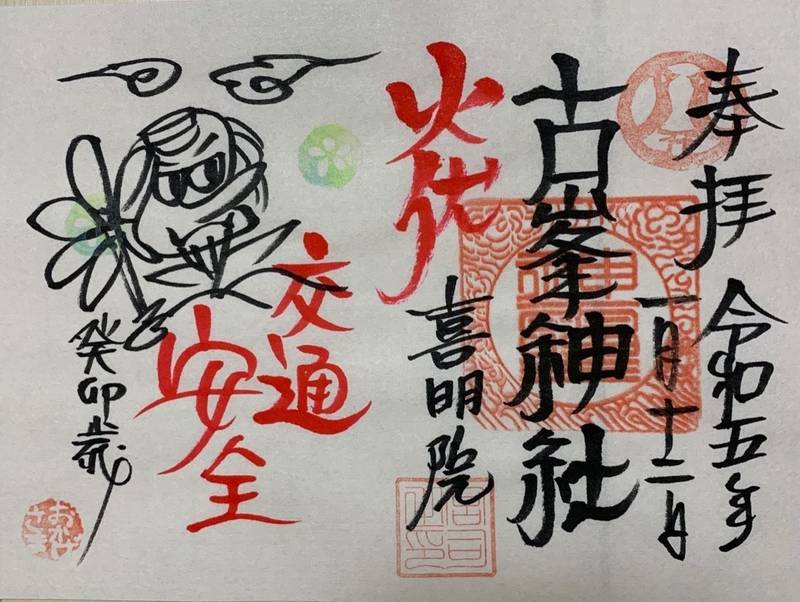 奉拝
令和五年
一月十二日
古峯神社
火伏
喜明院
交通
安全
癸卯歳